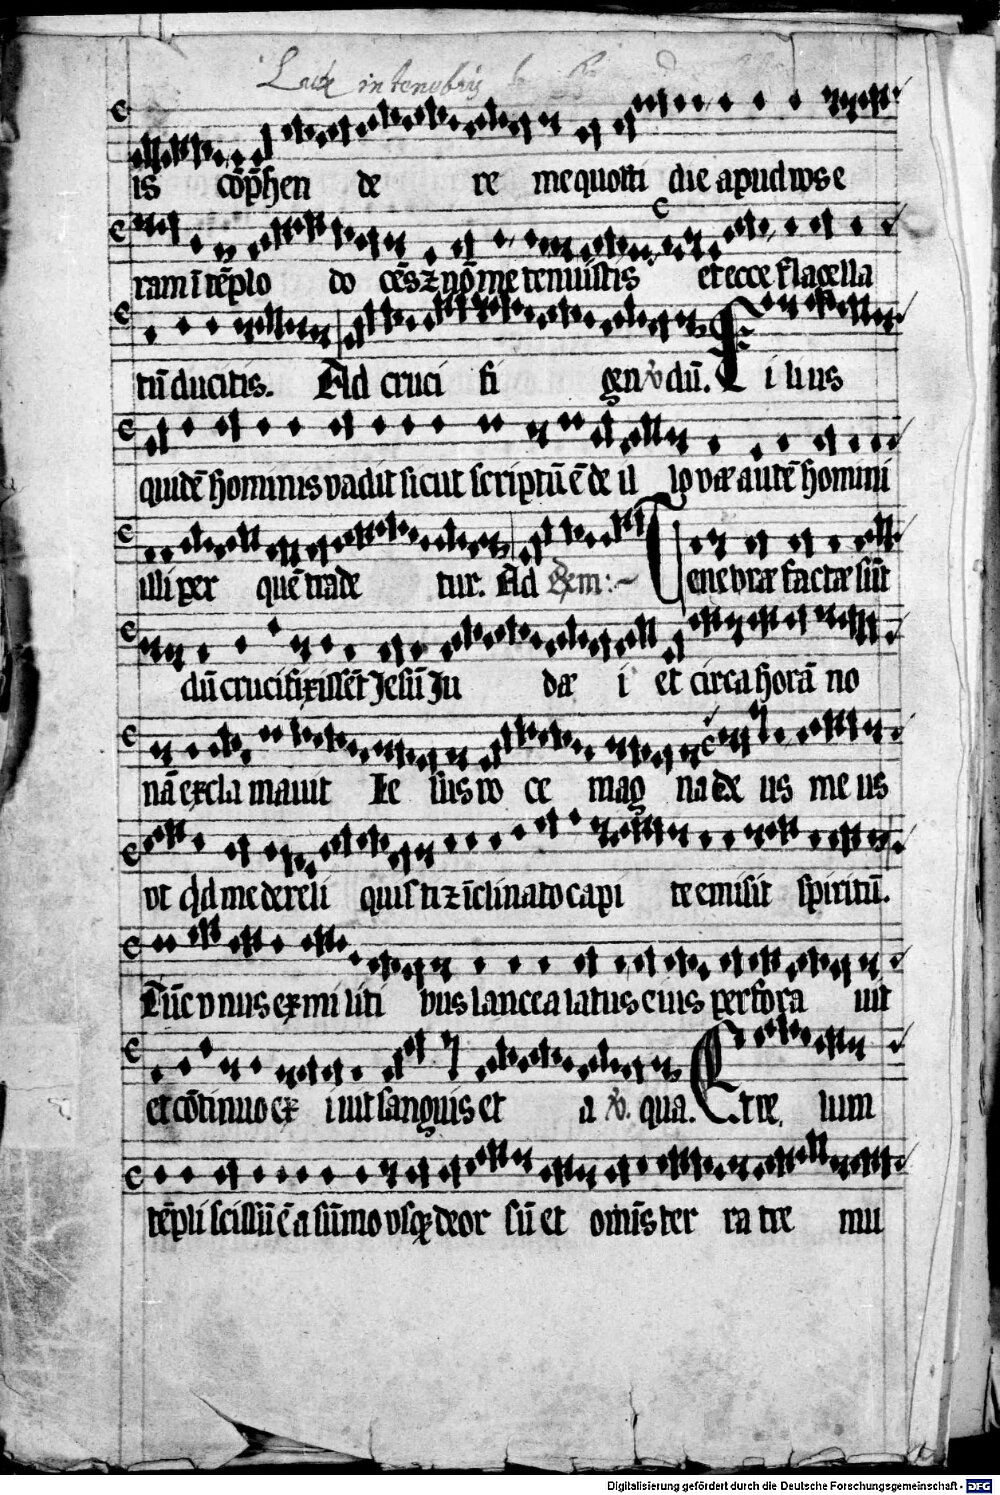 Lux in tenebris
is cōp̄hen de re me quotti die apud vos e
ram ī tēplo do cēs ⁊ nō me tenuistis et ecce flagella
tū ducitis. Ad cruci fi gen ℣ dū. Filius
quidē hominis vadit sicut scriptū ē de il lo væ autē homini
illi per quē trade tur. Ad Tenebræ factæ sūt
dū crucifixissēt Jesū Ju dæ i et circa horā no
nā exclamavit Je sus vo ce mag na de us me us
vt qd me dereli quisti ⁊ īclinato capi te emisit spiritū.
Tūc vnus ex mi liti bus lancea latus eius perfora vit
et cōtinuo ex ivit sanguis et a ℣. qua. Et ve lum
tēpli scissū ē a sūmo vsq deor sū et omīs ter ra tre mu
Digitalisierung gefördert durch die Deutsche Forschungsgemeinschaft - DFG